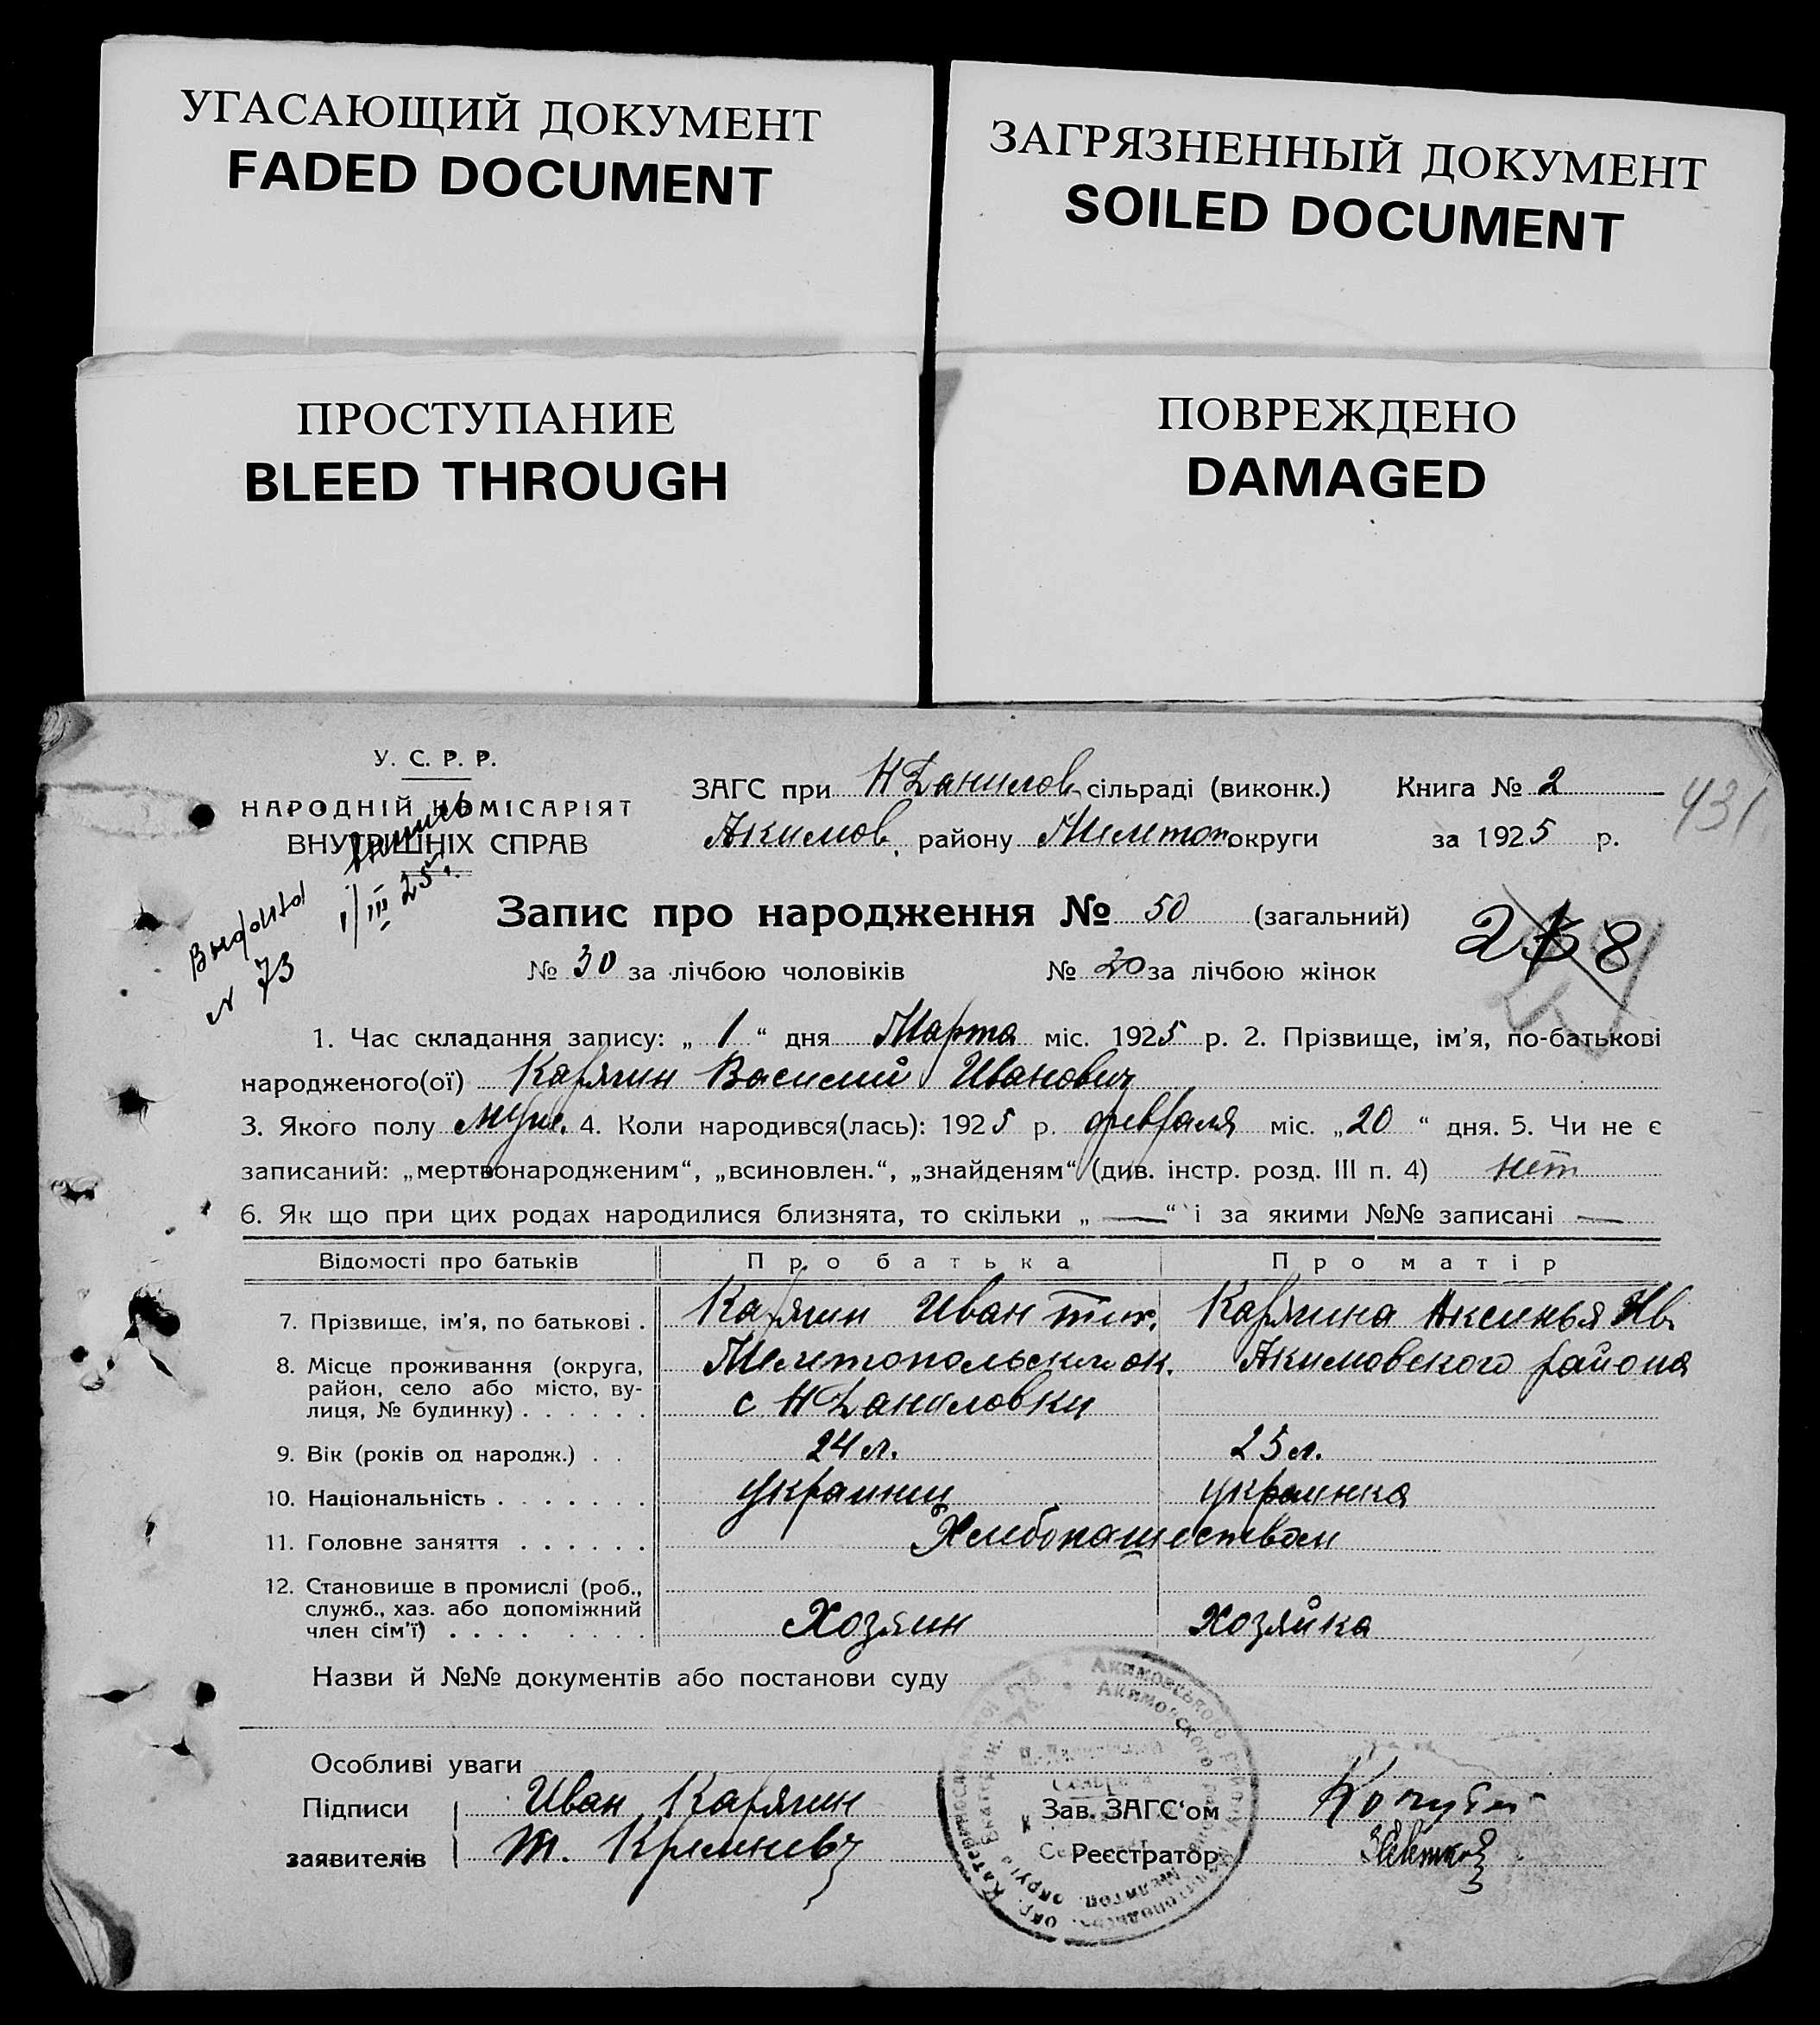 УГАСАЮЩИЙ ДОКУМЕНТ
FADED DOCUMENT
ЗАГРЯЗНЕННЫЙ ДОКУМЕНТ
SOILED DOCUMENT
ПРОСТУПАНИЕ
BLEED THROUGH
ПОВРЕЖДЕНО
DAMAGED
У. С. Р. Р.
НАРОДНІЙ КОМІСАРІЯТ
ВНУТРІШНІХ СПРАВ
Выдана
N 73
1/III 25.
ЗАГС при Н Данилов. сільраді (виконк.) Книга № 2
431
Акимов. району Мелитоп округи за 1925 р.
Запис про народження № 50 (загальний)
№ 30 за лічбою чоловіків № 20 за лічбою жінок
1. Час складання запису: „ 1 “ дня Марта міс. 1925 р. 2. Прізвище, ім'я, по-батькові
народженого(ої) Карягин Василий Иванович
3. Якого полу муж. 4. Коли народився(лась): 1925 р. февраля міс. „20 “ дня. 5. Чи не є
записаний: „мертвонародженим“, „всиновлен.“, „знайденям“ (див. інстр. розд. III п. 4) нет
6. Як що при цих родах народилися близнята, то скільки „ — “ і за якими №№ записані —
Відомості про батьків Про батька Про матір
7. Прізвище, ім'я, по батькові . Карягин Иван Тих. Карягина Аксинья Ив.
8. Місце проживання (округа, район, село або місто, вулиця, № будинку) . . . . . .
Мелитопольского ок. Акимовского района
с Н Даниловки
9. Вік (років од народж.) . . 24 л. 25 л.
10. Національність . . . . . . . украинец украинка
11. Головне заняття . . . . . . Хлебопашеством
12. Становище в промислі (роб.,
служб., хаз. або допоміжний
член сім'ї) . . . . . . . . Хозяин Хозяйка
Назви й №№ документів або постанови суду
Особливі уваги
Підписи Иван Карягин Зав. ЗАГС'ом
заявителів Т. Реєстратор